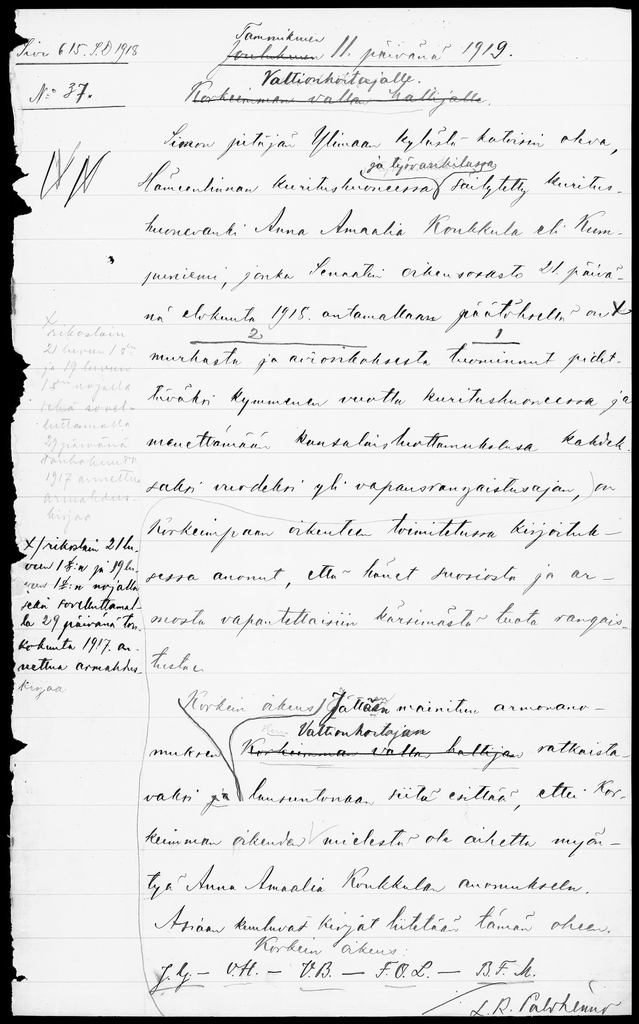 Siv. 615. S.D 1918
Tammikuun
Joulukuun 11. päivänä 1919.
No 37.
Valtionhoitajalle.
Korkeimman vallan haltijalle.
Simon pitäjän Ylimaan kylästä kotoisin oleva,
ja työvankilassa
Hämeenlinnan kuritushuoneessa säilytetty kuritus-
huonevanki Anna Amaalia Koukkula eli Kum-
puniemi, jonka Senaatin oikeusosasto 21 päivä-
nä elokuuta 1918 antamallaan päätöksellä on X
2 1
murhasta ja aviorikoksesta tuominnut pidet-
täväksi kymmenen vuotta kuritushuoneessa ja
menettämään kansalaisluottamuksensa kahdek-
saksi vuodeksi yli vapausrangaistusajan, on
Korkeimpaan oikeuteen toimitetussa kirjoituk-
sessa anonut, että hänet suosiosta ja ar-
mosta vapautettaisiin kärsimästä tuota rangais-
tusta.
X
rikoslain
21 luvun 1 §:n
ja 19 luvun
1 §:n nojalla
sekä sovel-
luttamalla
29 päivänä
toukokuuta
1917 annettua
armahdus-
kirjaa
X/ rikoslain 21 lu-
vun 1 §:n ja 19 lu-
vun 1 §:n nojalla
sekä sovelluttamal-
la 29 päivänä tou-
kokuuta 1917 an-
nettua armahdus-
kirjaa
Korkein oikeus Jättäen mainitun armonano-
Valtionhoitajan
muksen Korkeimman vallan haltijan ratkaista-
vaksi ja lausuntonaan siitä esittää, ettei Kor-
keimman oikeuden mielestä ole aihetta myön-
tyä Anna Amaalia Koukkulan anomukseen.
Asiaan kuuluvat kirjat liitetään tämän oheen.
Korkein oikeus:
J. G. — V.H. — V.B. — F.O.L. — B.F.M.